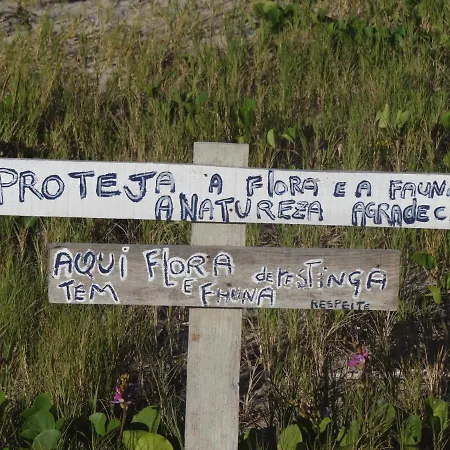 PROTEJA A FLORA E A FAUNA
A NATUREZA AGRADEC
AQUI FLORA DE RESTINGA
TEM E FAUNA
RESPEITE